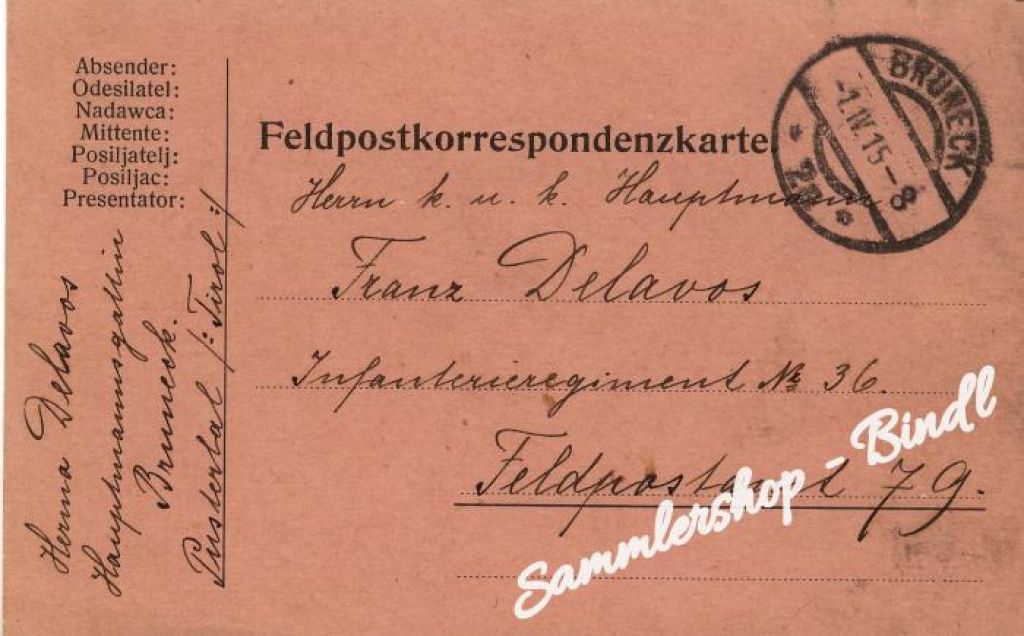 Absender:
Odesilatel:
Nadawca:
Mittente:
Posiljatelj:
Posiljac:
Presentator:
Herma Delavos
Hauptmannsgattin
Bruneck.
Pustertal /: Tirol :/
Feldpostkorrespondenzkarte.
BRUNECK
-1.IV.15-8
* 2a *
Herrn k. u. k. Hauptmann
Franz Delavos
Infanterieregiment № 36.
Feldpostamt 79.
Sammlershop - Bindl